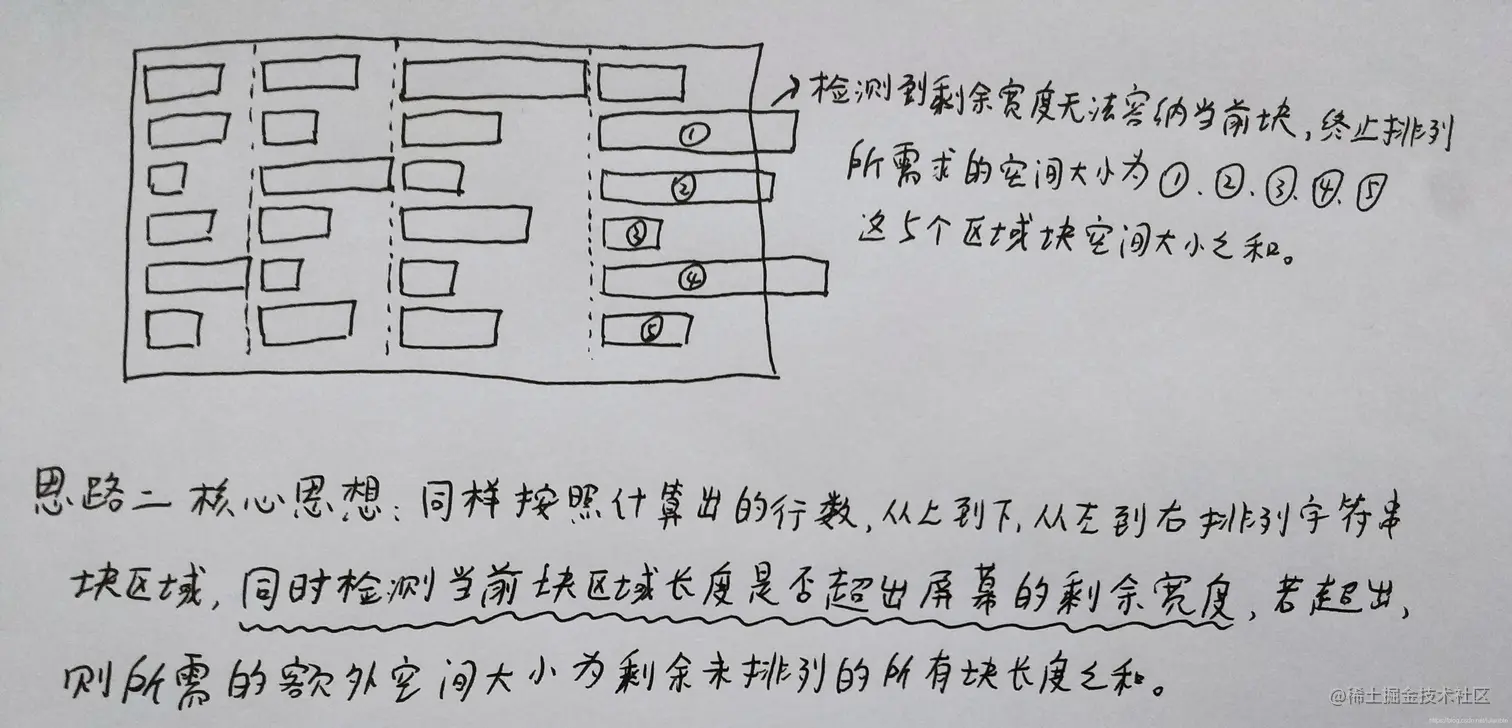 检测到剩余宽度无法容纳当前块,终止排列
所需求的空间大小为①、②、③、④、⑤
这5个区域块空间大小之和。
①
②
③
④
⑤
思路二核心思想:同样按照计算出的行数,从上到下,从左到右排列字符串
块区域,同时检测当前块区域长度是否超出屏幕的剩余宽度,若超出,
则所需的额外空间大小为剩余未排列的所有块长度之和。
@稀土掘金技术社区